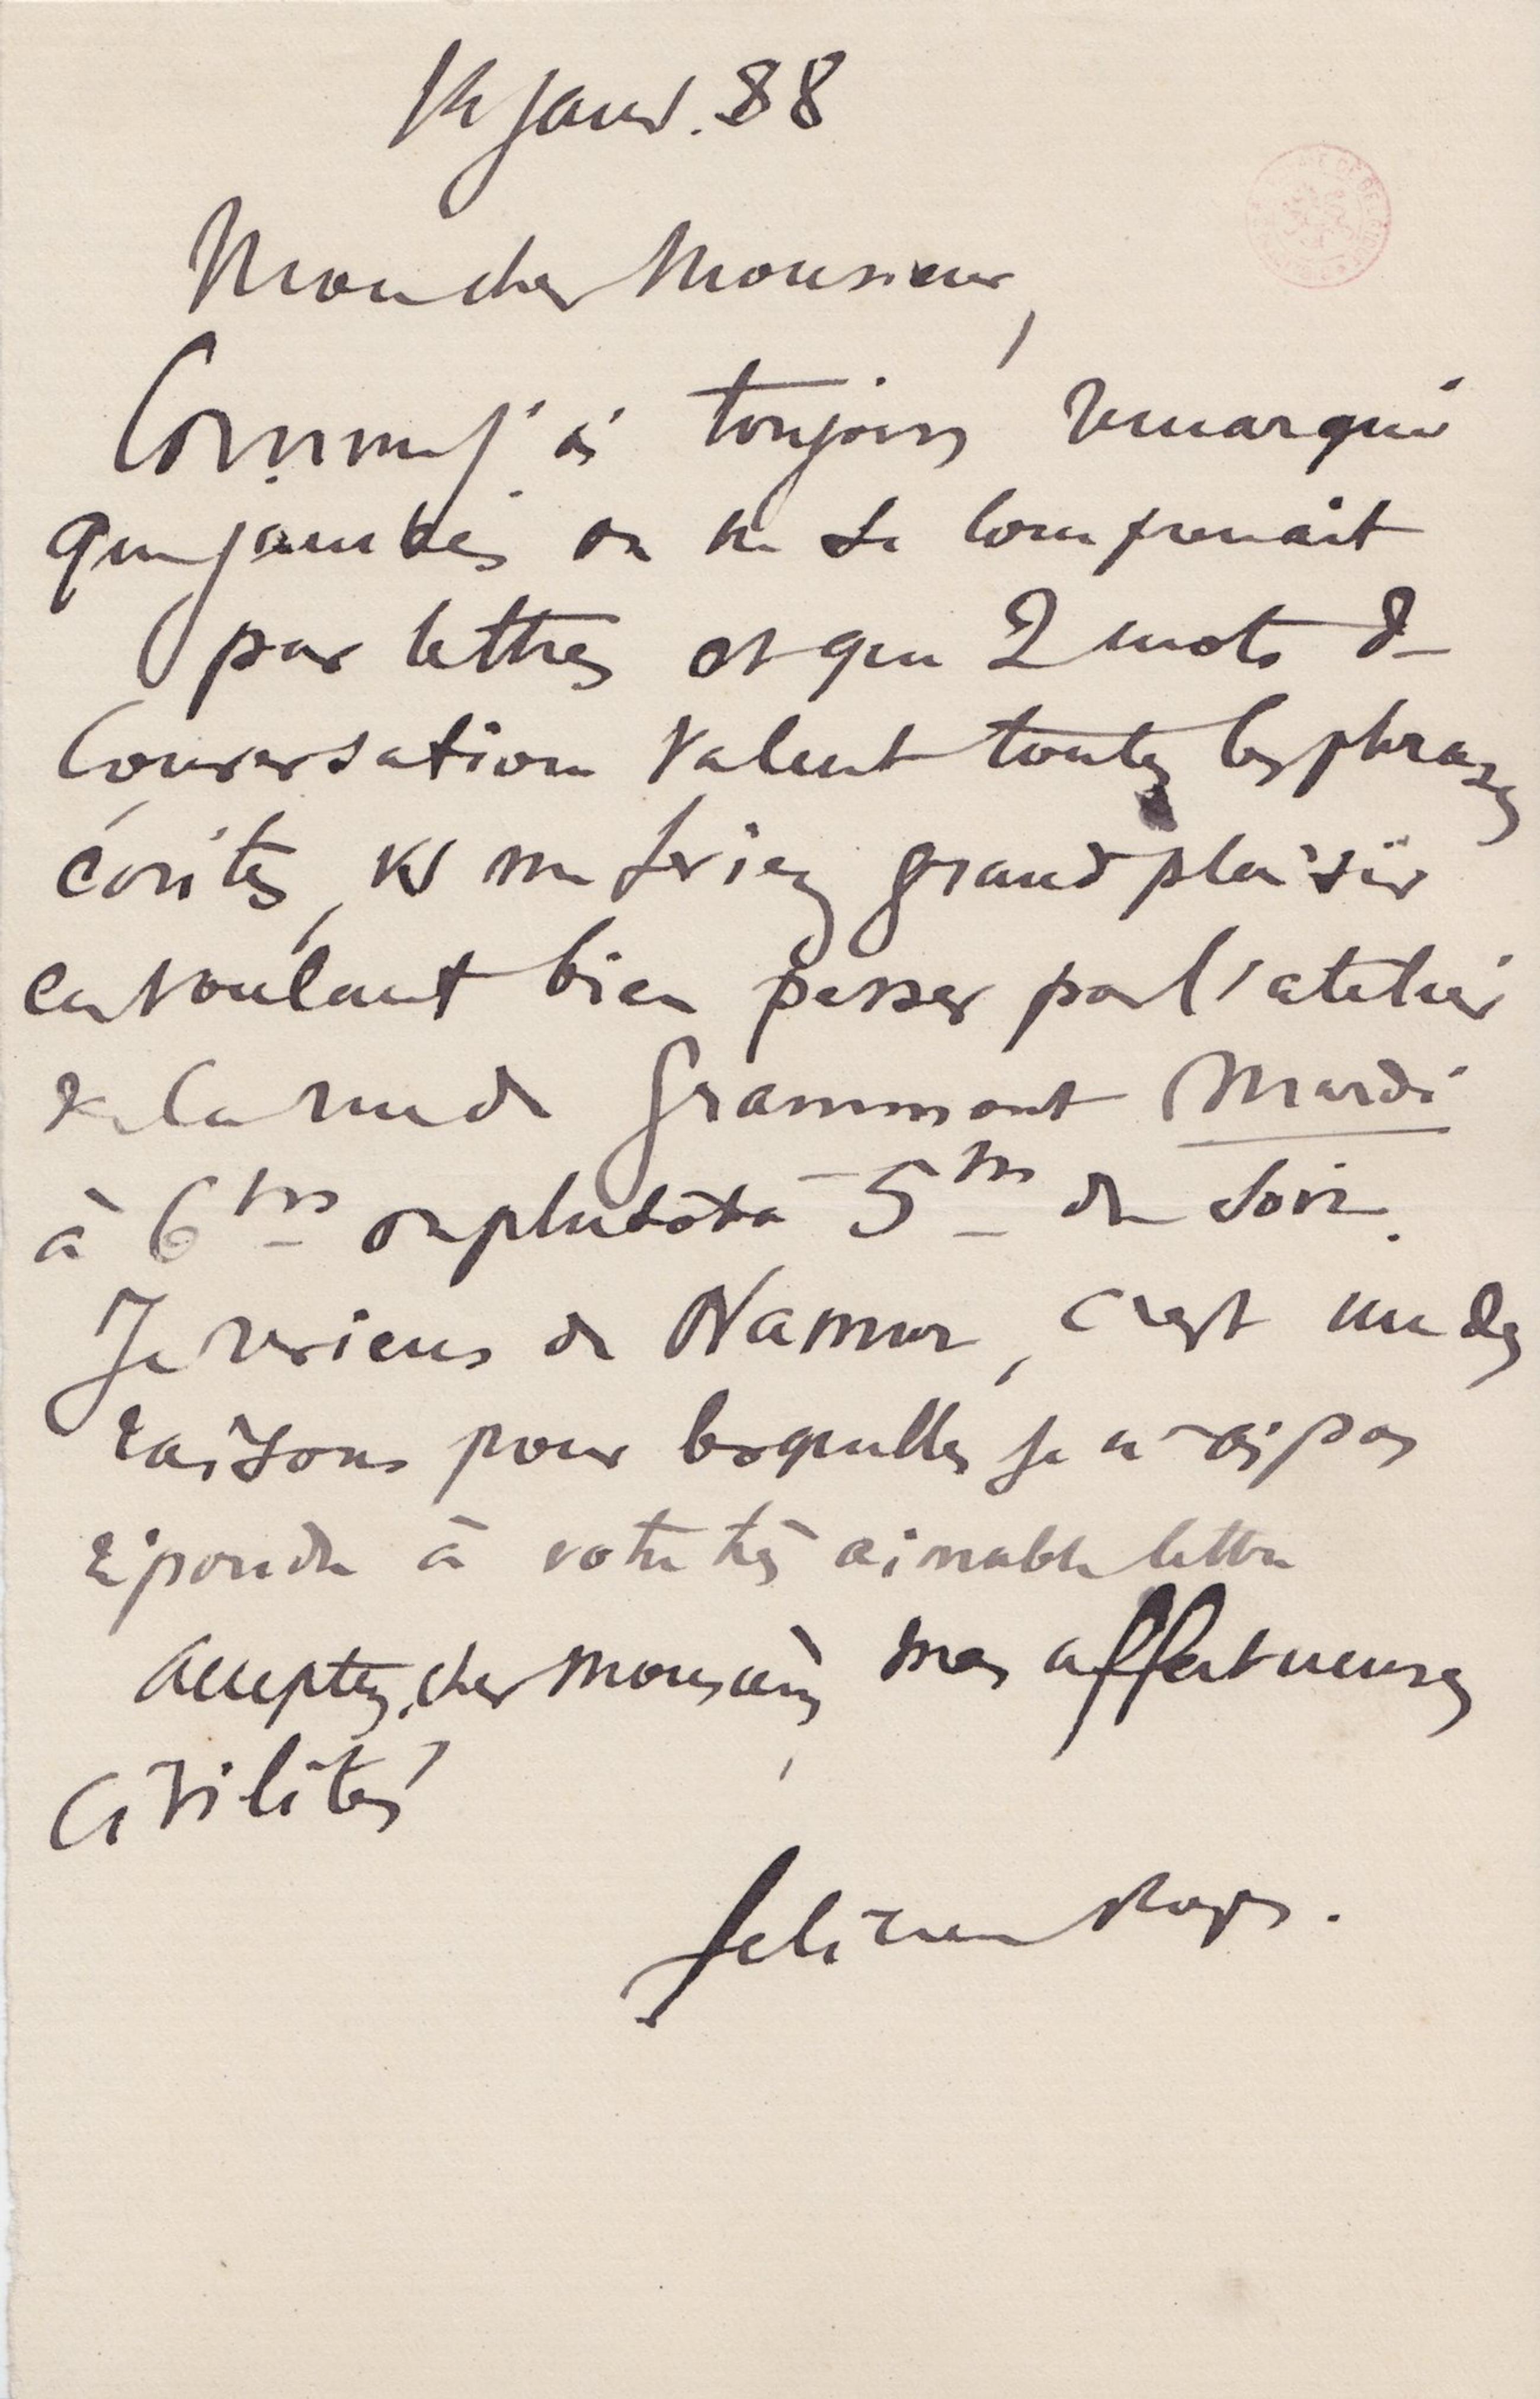 Janv. 88
Mon cher Monsieur,
Comme j'ai toujours remarqué
que jamais on ne se comprenait
par lettres et que 2 mots de
Conversation valent toutes les phrases
écrites, vs me feriez grand plaisir
en voulant bien passer par l'atelier
de la rue de Grammont Mardi
à 6 hrs ou plutôt à 5 hrs du soir.
Je reviens de Namur, c'est une des
raisons pour lesquelles je n'ai pas
répondu à votre très aimable lettre
Acceptez, cher Monsieur, mes affectueuses
Civilités
Félicien Rops.